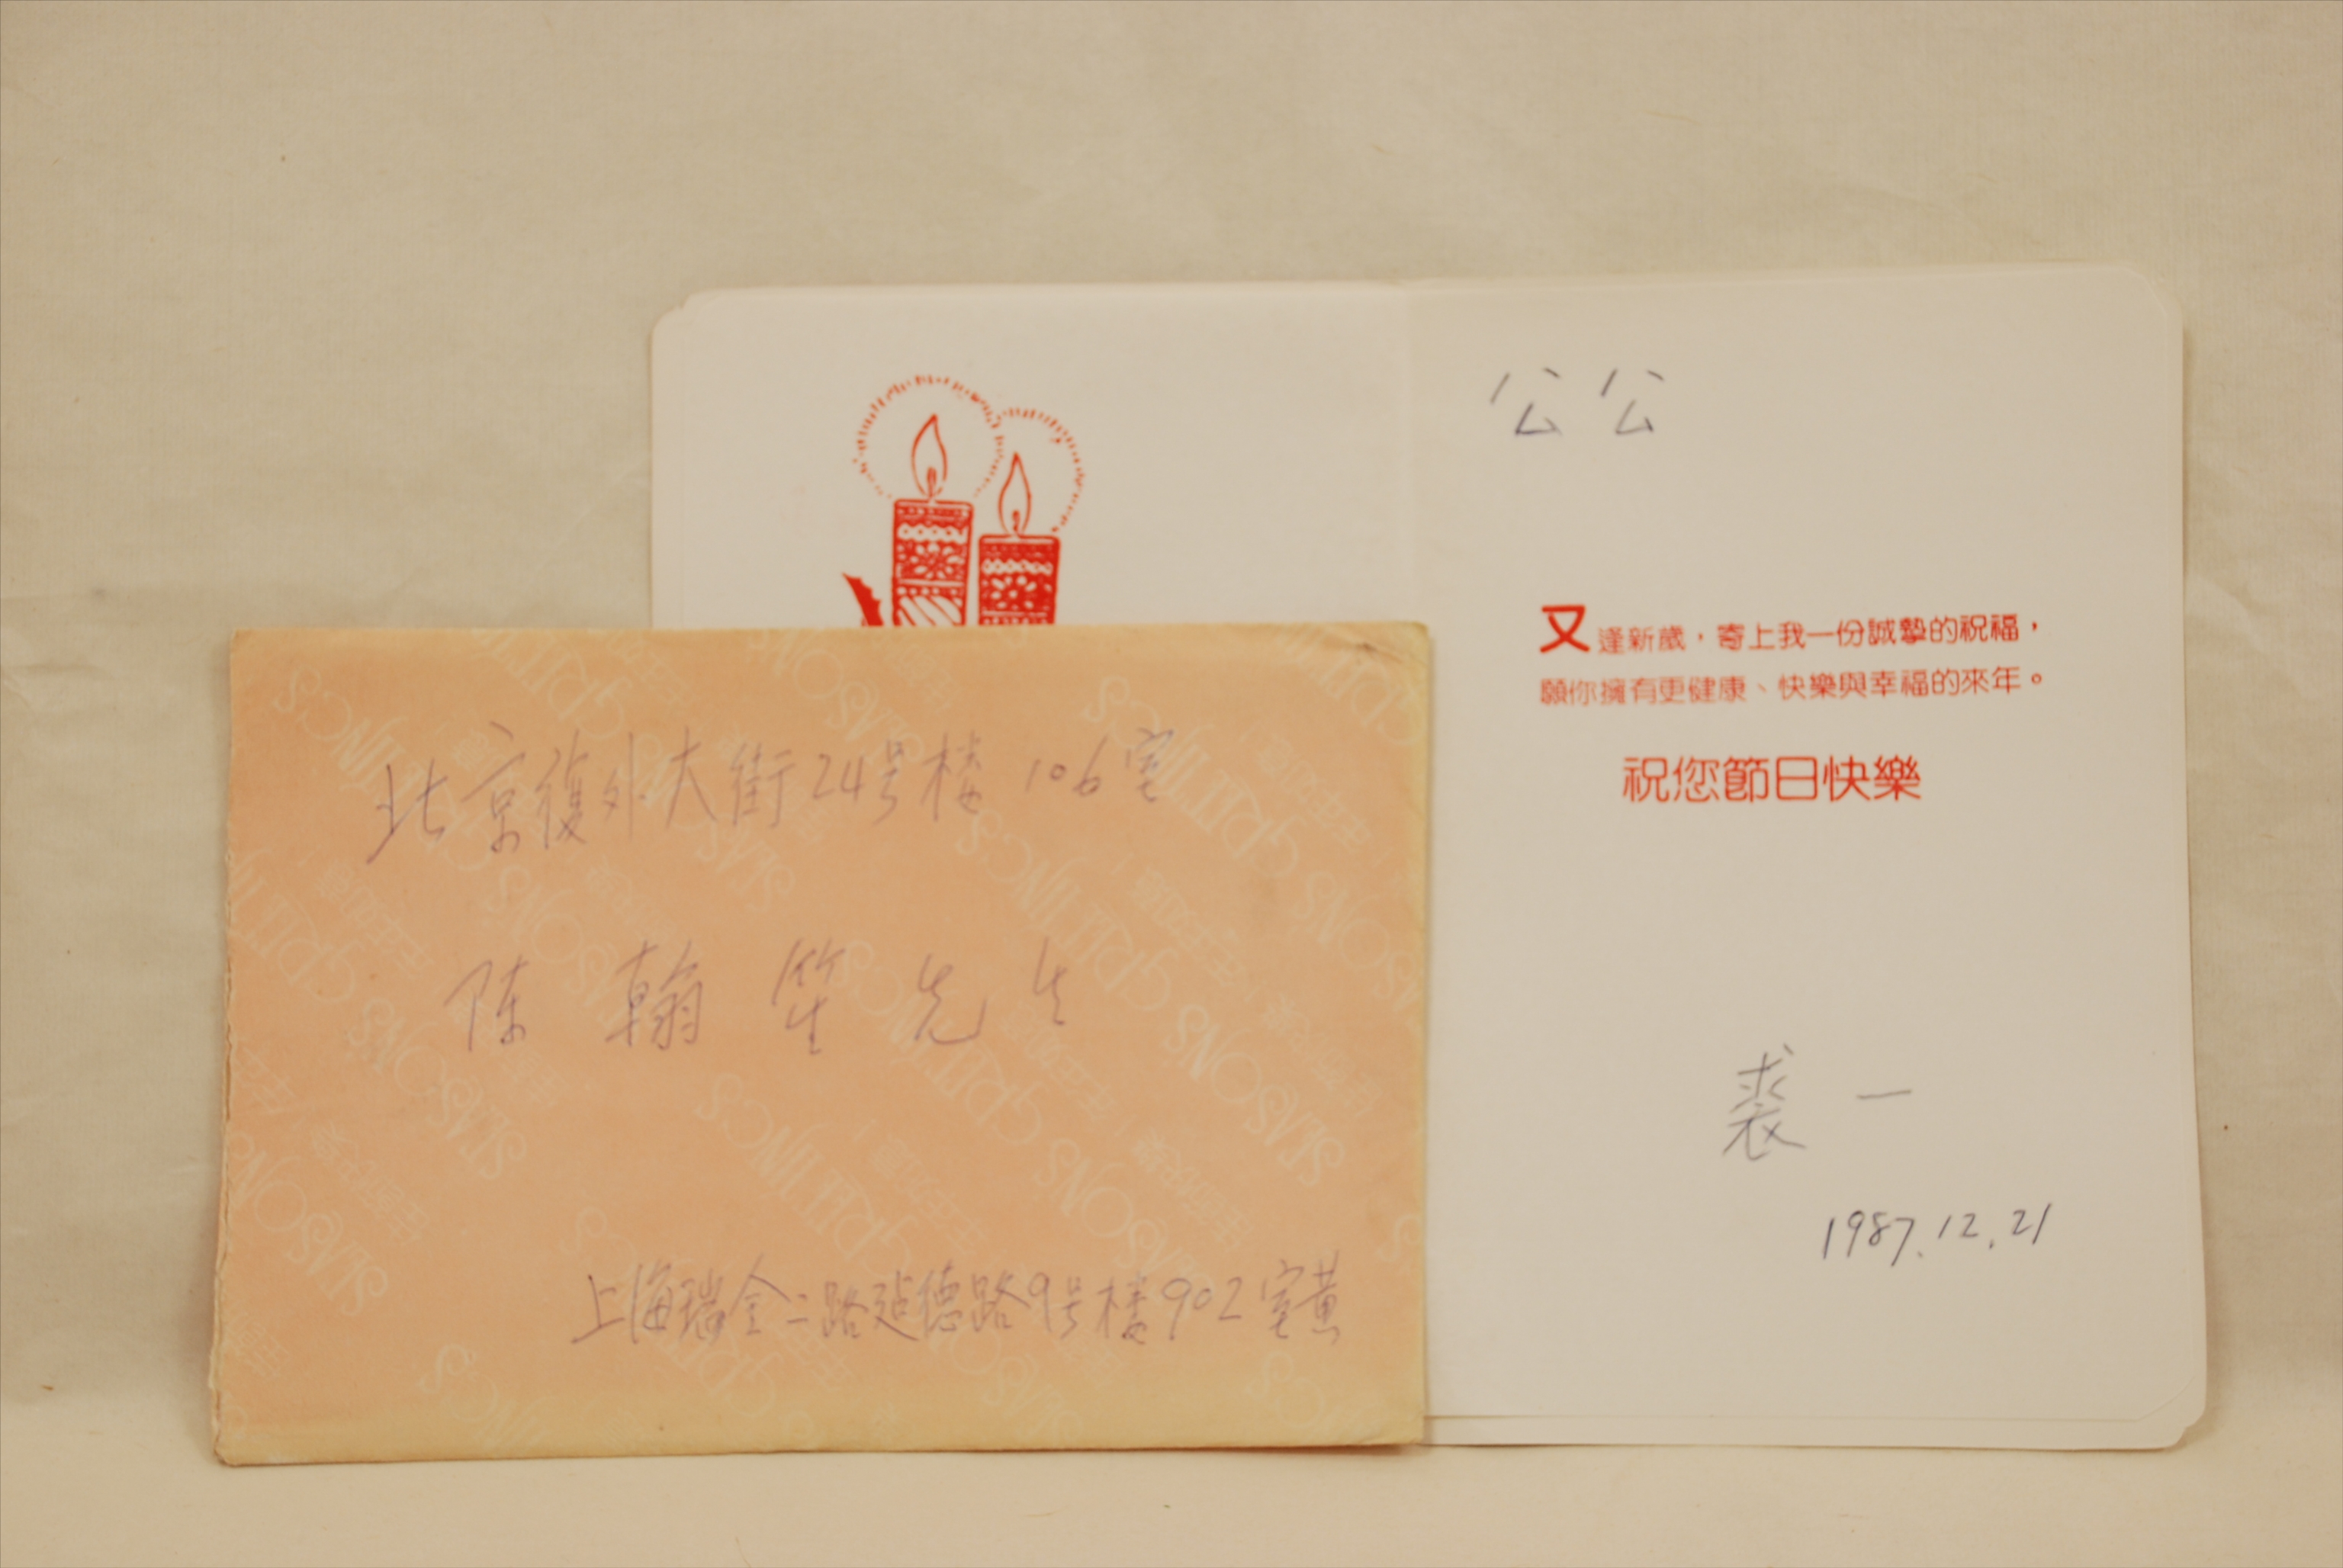 北京復外大街24号楼 106室
陈翰笙先生
上海瑞金二路建德路9号楼902室黄
公公
又逢新歲，寄上我一份誠摯的祝福，
願你擁有更健康、快樂與幸福的來年。
祝您節日快樂
裘一
1987.12.21
SEASON'S GREETINGS